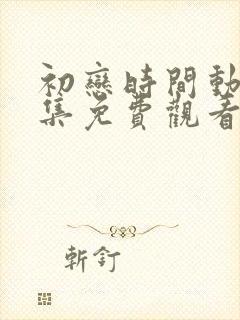 初戀時間動
集免費觀看
斬釘